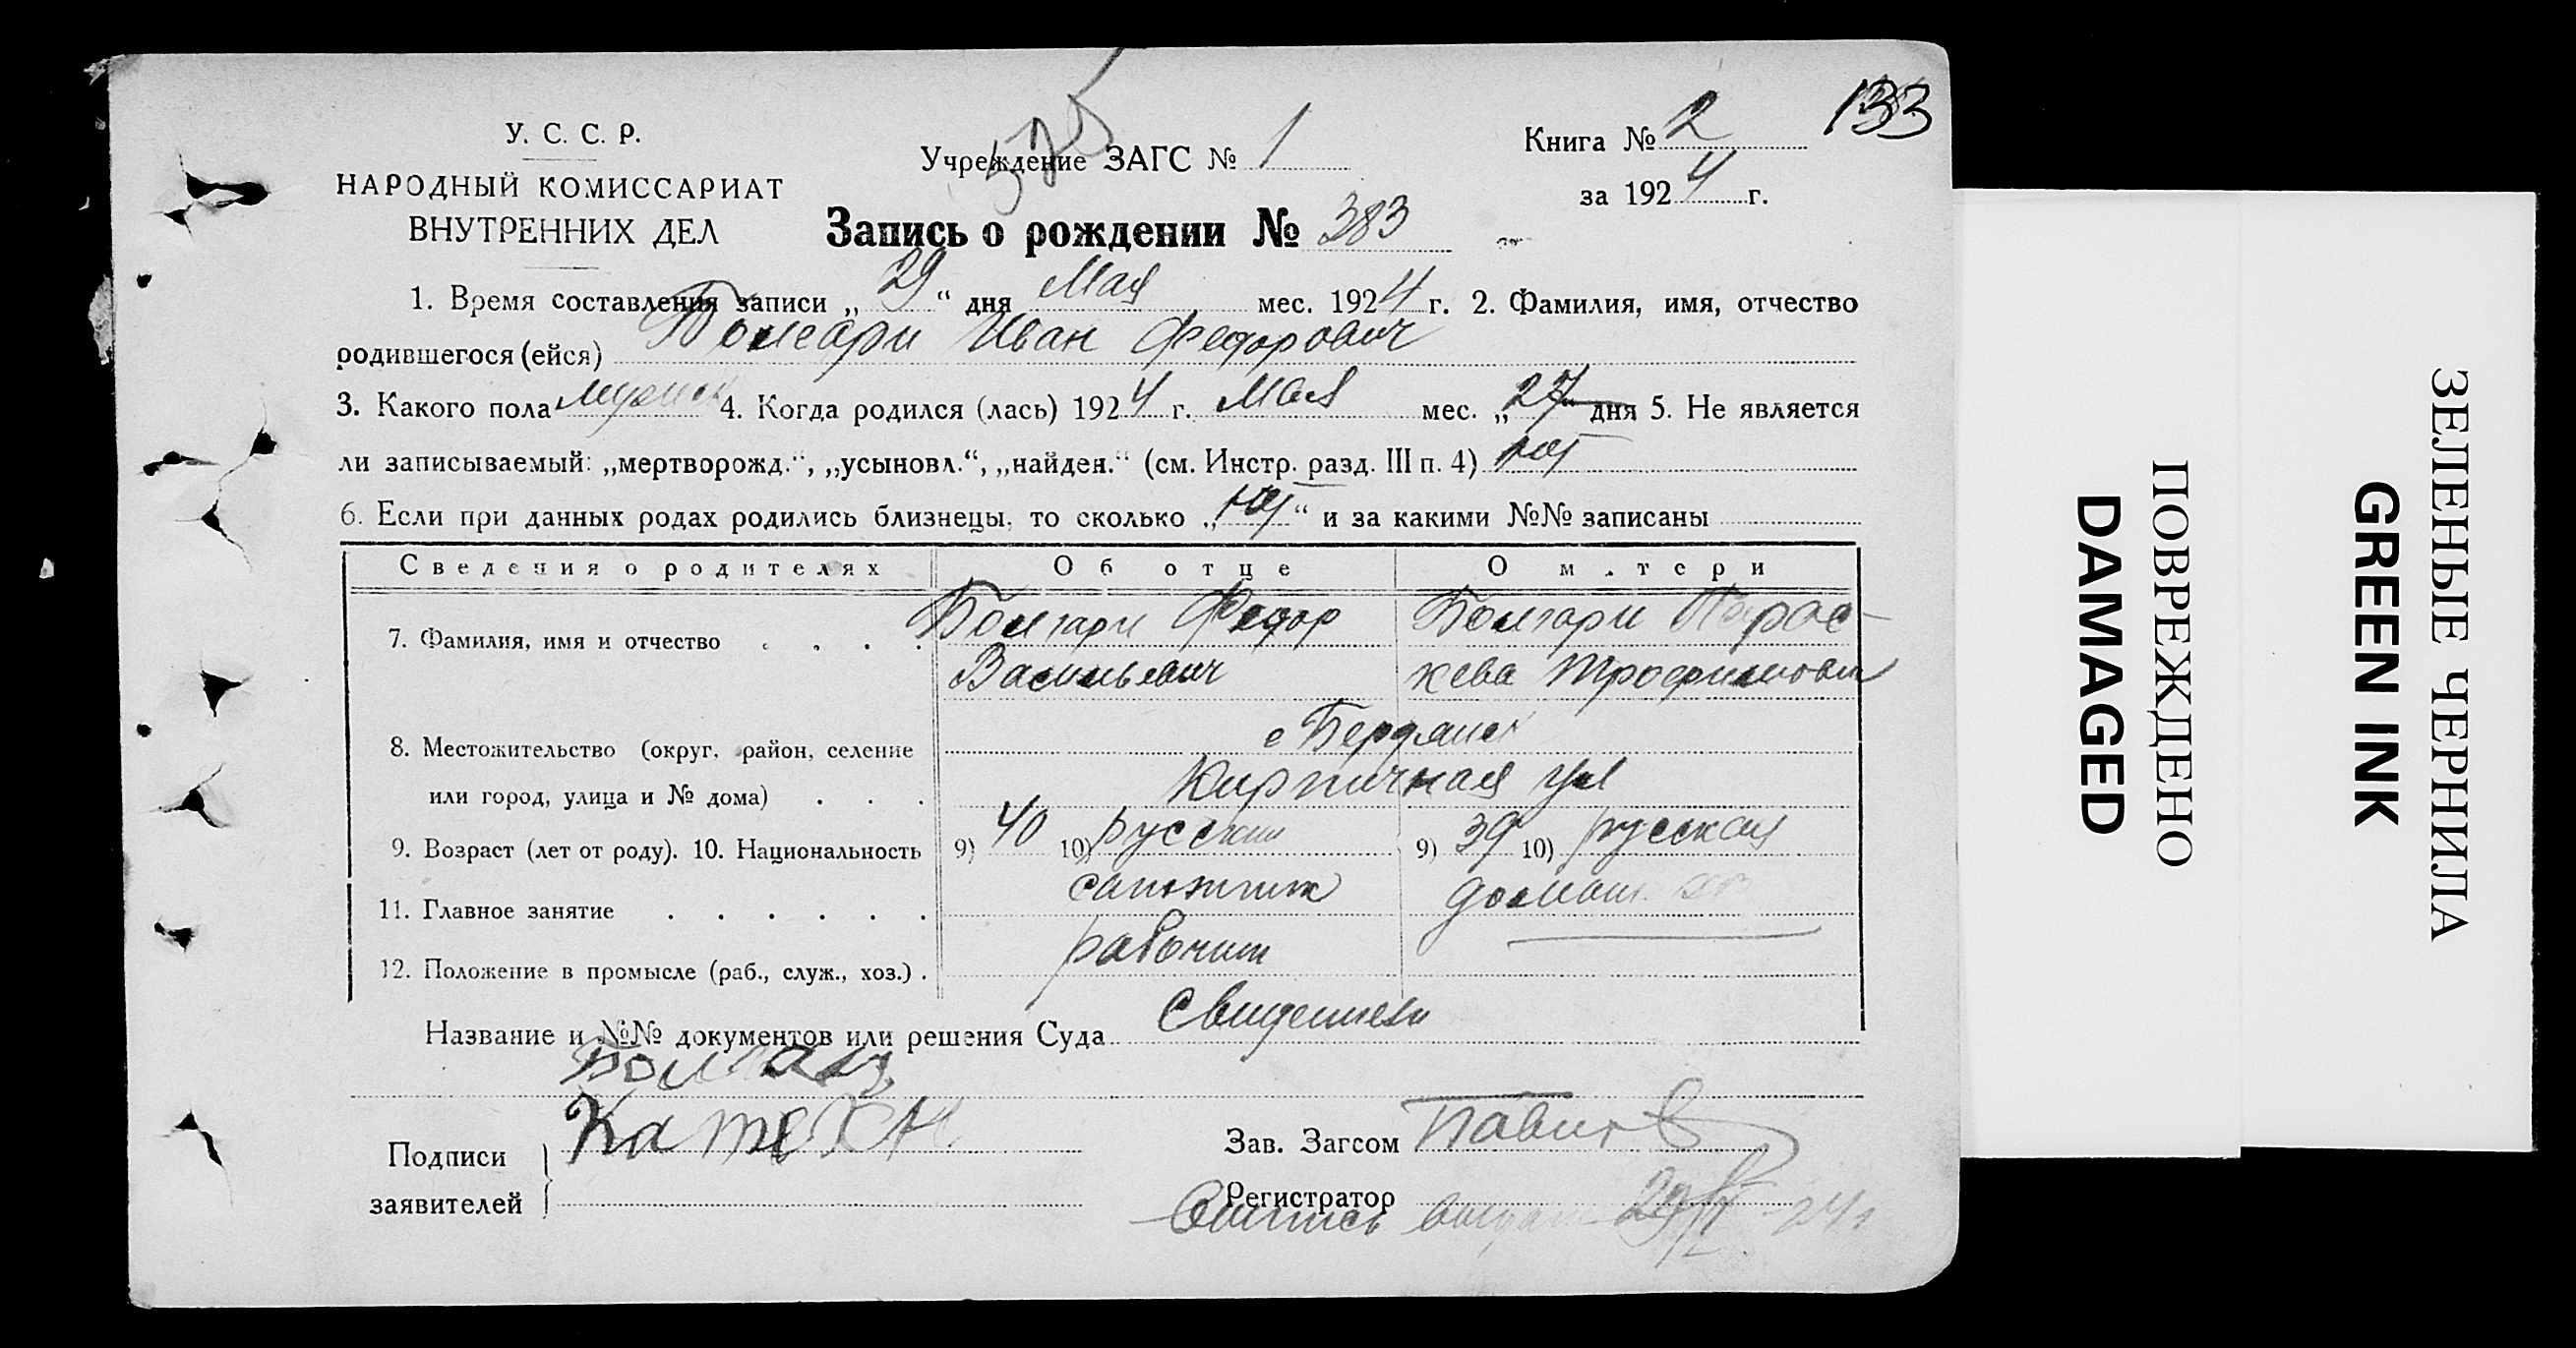 133
525
У. С. С. Р.
НАРОДНЫЙ КОМИССАРИАТ
ВНУТРЕННИХ ДЕЛ
Учреждение ЗАГС № 1
Книга № 2
за 1924 г.
Запись о рождении № 383
1. Время составления записи „29“ дня Мая мес. 1924 г. 2. Фамилия, имя, отчество
родившегося (ейся) Болгари Иван Федорович
3. Какого пола мужск 4. Когда родился (лась) 1924 г. Мая мес. „27“ дня 5. Не является
ли записываемый: „мертворожд.“, „усыновл.“, „найден.“ (см. Инстр. разд. III п. 4) нет
6. Если при данных родах родились близнецы, то сколько „нет“ и за какими №№ записаны
Сведения о родителях Об отце О матери
7. Фамилия, имя и отчество . . . . Болгари Федор Болгари Парас-
Васильевич кева Трофимовн
8. Местожительство (округ, район, селение Бердянск
или город, улица и № дома) . . . Кирпичная ул
9. Возраст (лет от роду). 10. Национальность 9) 40 10) русский 9) 39 10) русская
11. Главное занятие . . . . . . сапожник домаш. хоз
12. Положение в промысле (раб., служ., хоз.) . рабочий
Название и №№ документов или решения Суда Свидетели
Подписи
заявителей
Зав. Загсом
Регистратор
29/V 24 г
ПОВРЕЖДЕНО
DAMAGED
ЗЕЛЕНЫЕ ЧЕРНИЛА
GREEN INK